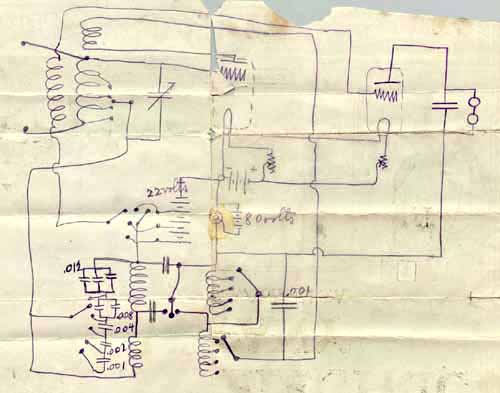 22 volts
+
80 volts
.012
.008
.004
.002
.001
.001